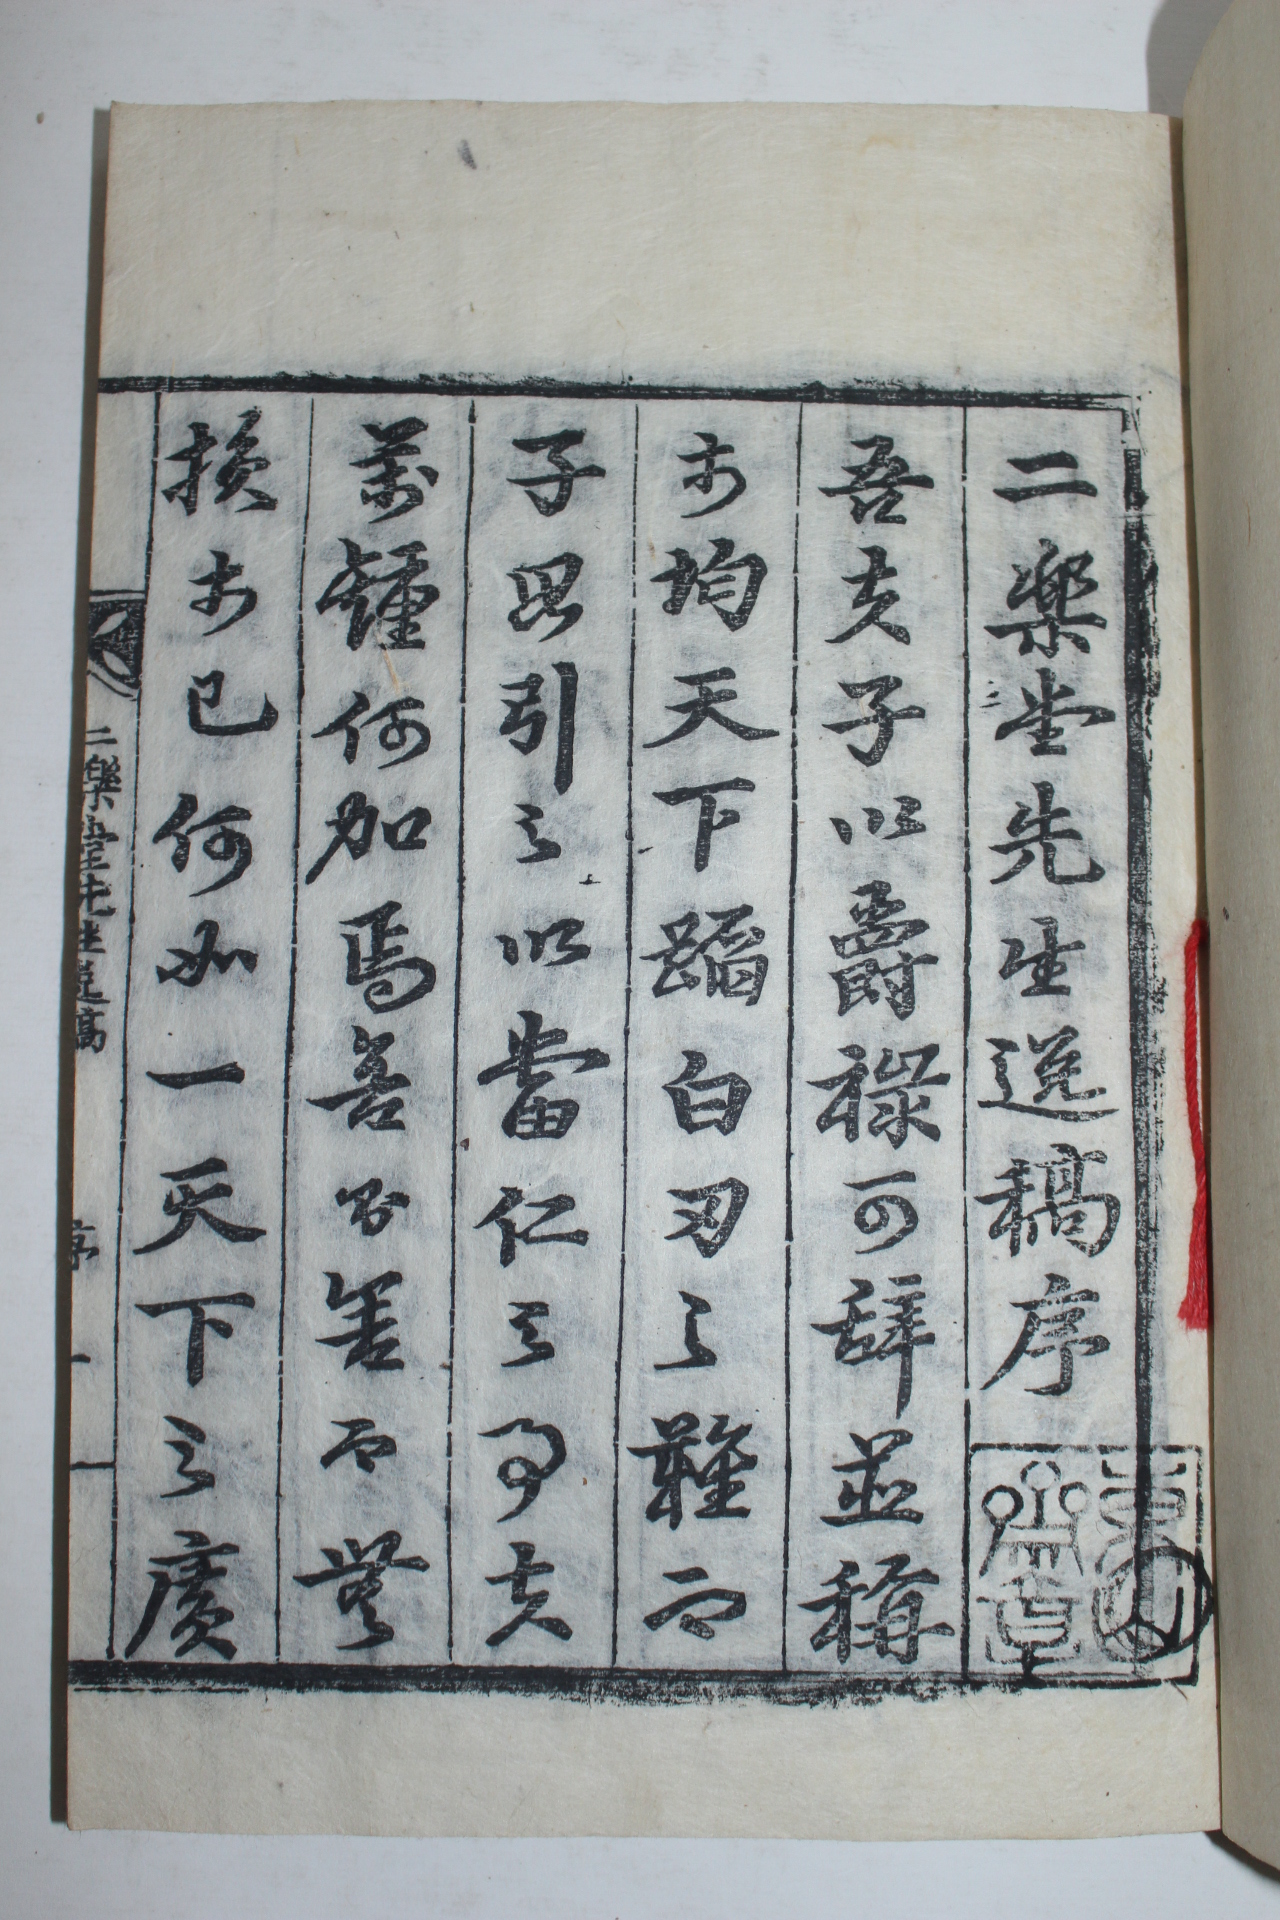 二樂堂先生逸稿序
吾夫子以爵祿可辭並稱
於均天下蹈白刃之難而
子思引之以當仁之事夫
萬鍾何加焉善而無
損於己何如一天下之廣
二樂堂先生逸稿 序 一